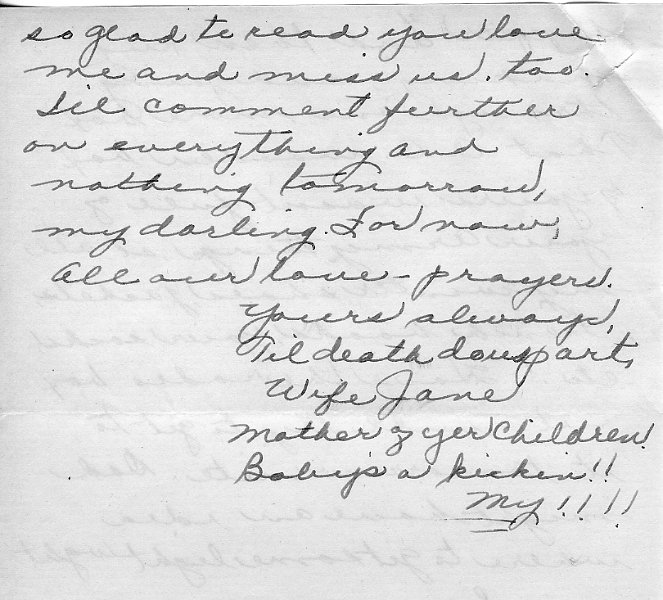 so glad to read you love
me and miss us, too.
I'll comment further
on everything and
nothing tomorrow,
my darling. For now,
All our love - prayers.
Yours always,
'Til death do us part,
Wife Jane
Mother of yer Children!
Baby's a kickin!!
My!!!!